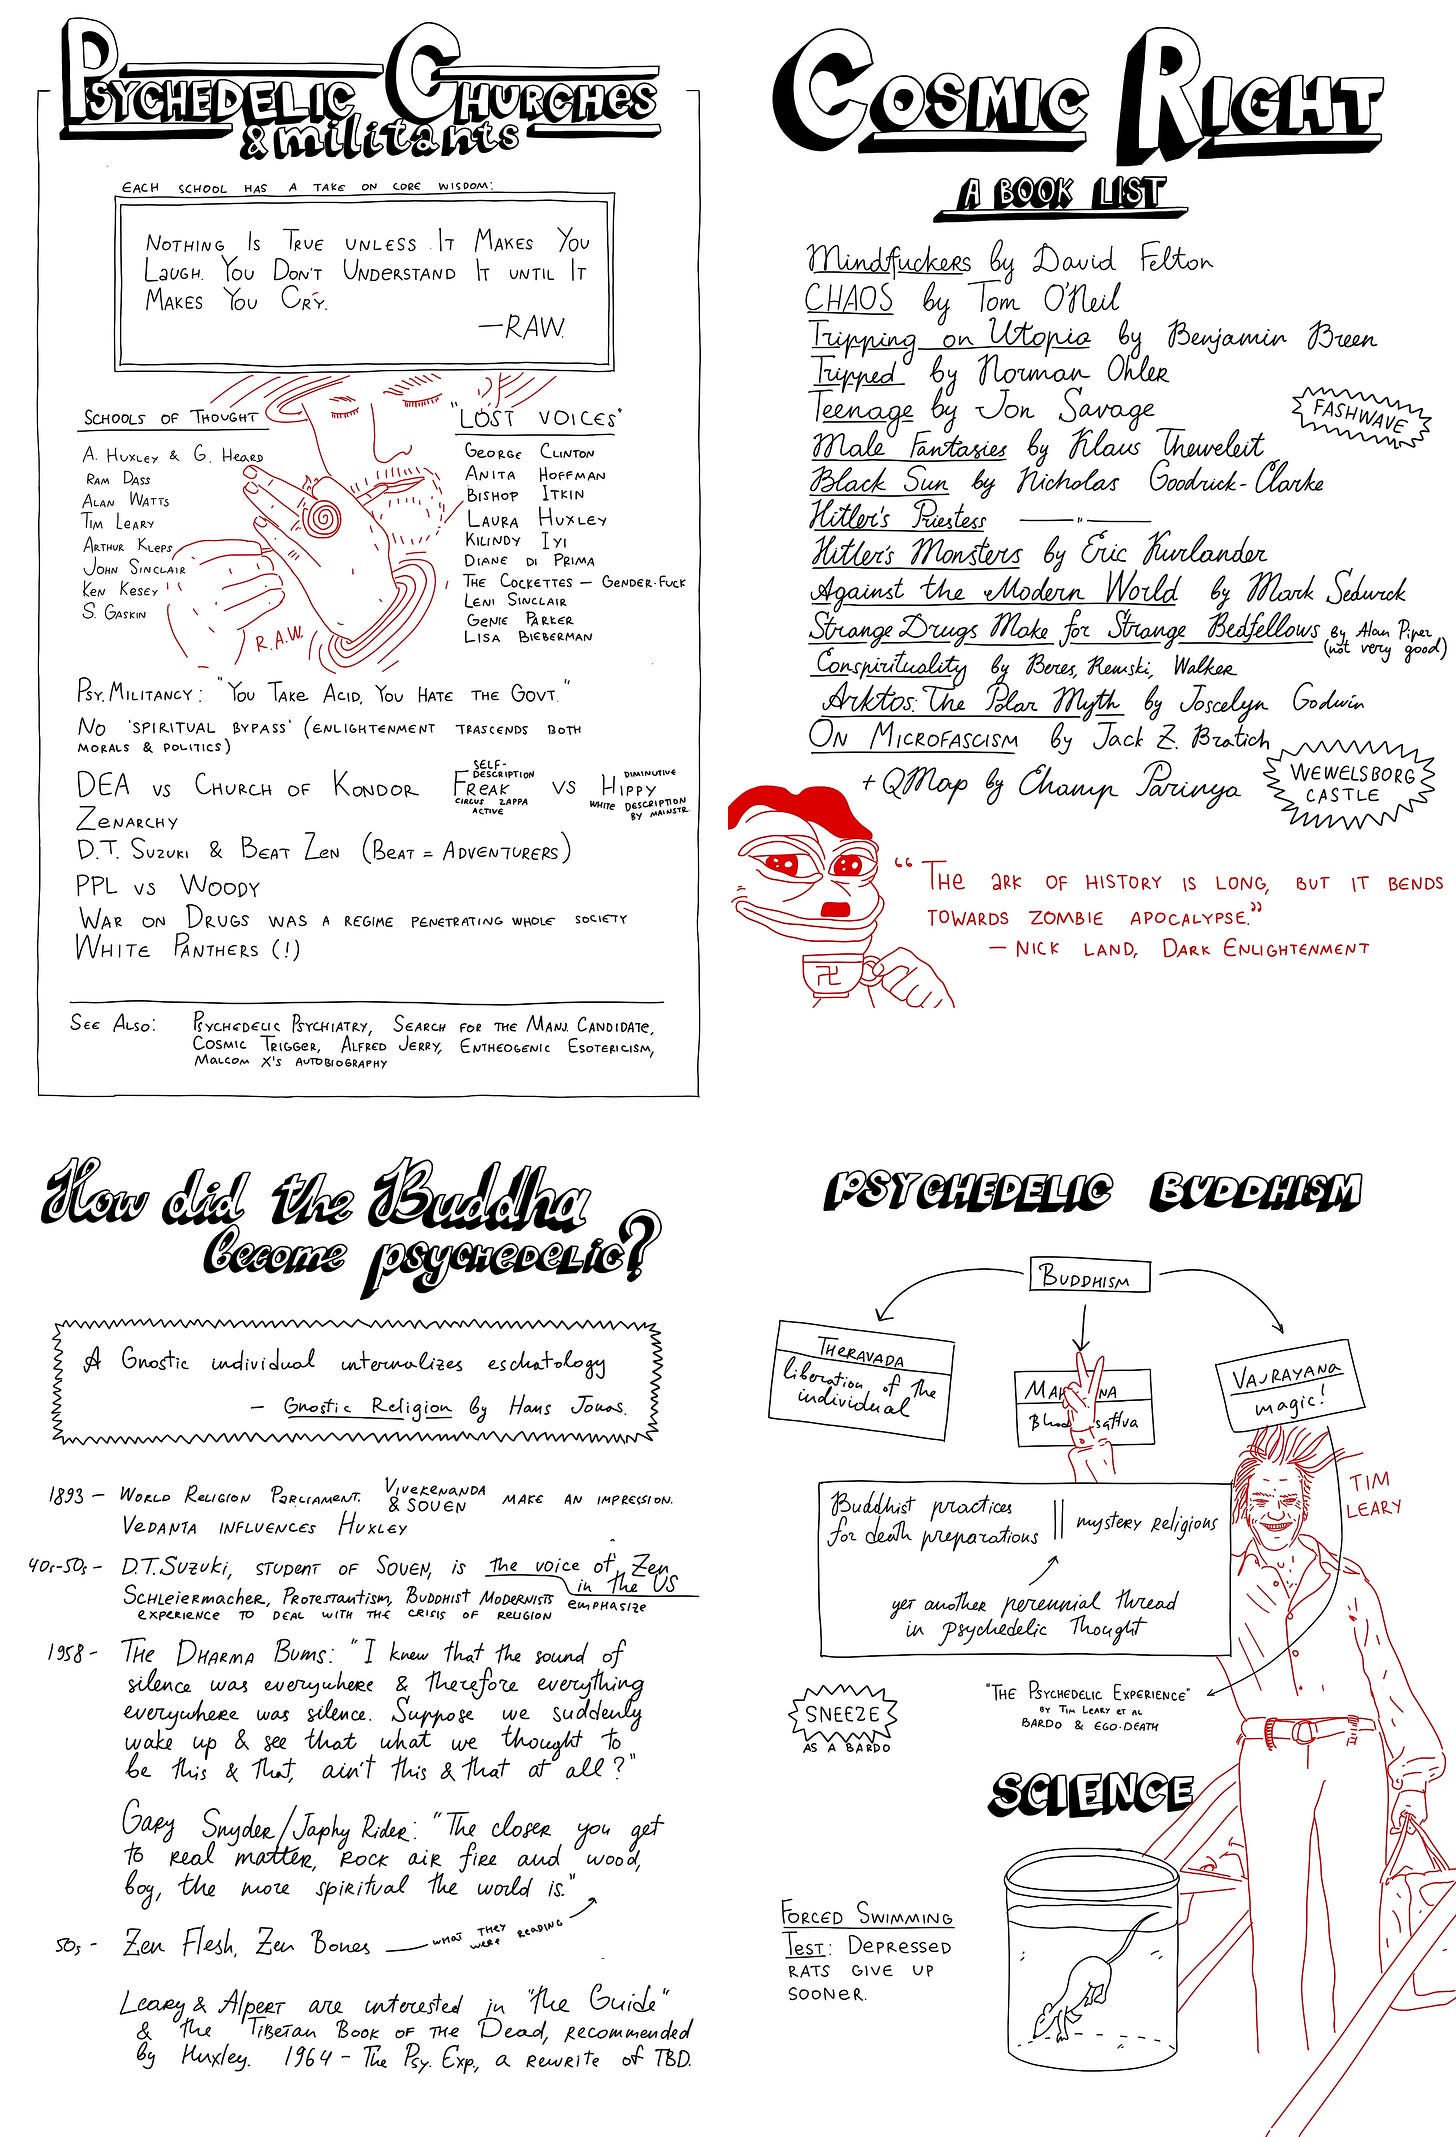 PSYCHEDELIC CHURCHES
& militants
EACH SCHOOL HAS A TAKE ON CORE WISDOM:
NOTHING IS TRUE UNLESS IT MAKES YOU
LAUGH. YOU DON'T UNDERSTAND IT UNTIL IT
MAKES YOU CRY.
—RAW.
SCHOOLS OF THOUGHT
A. HUXLEY & G. HEARD
RAM DASS
ALAN WATTS
TIM LEARY
ARTHUR KLEPS
JOHN SINCLAIR
KEN KESEY
S. GASKIN
R.A.W.
"LOST VOICES"
GEORGE CLINTON
ANITA HOFFMAN
BISHOP ITKIN
LAURA HUXLEY
KILINDY IYI
DIANE DI PRIMA
THE COCKETTES — GENDER-FUCK
LENI SINCLAIR
GENIE PARKER
LISA BIEBERMAN
PSY. MILITANCY: "YOU TAKE ACID, YOU HATE THE GOVT."
NO 'SPIRITUAL BYPASS' (ENLIGHTENMENT TRASCENDS BOTH
MORALS & POLITICS)
DEA VS CHURCH OF KONDOR
SELF-
DESCRIPTION
FREAK
CIRCUS ZAPPA
ACTIVE
VS
DIMINUTIVE
HIPPY
WHITE DESCRIPTION
BY MAINSTR.
ZENARCHY
D.T. SUZUKI & BEAT ZEN (BEAT = ADVENTURERS)
PPL VS WOODY
WAR ON DRUGS WAS A REGIME PENETRATING WHOLE SOCIETY
WHITE PANTHERS (!)
SEE ALSO: PSYCHEDELIC PSYCHIATRY, SEARCH FOR THE MANJ. CANDIDATE,
COSMIC TRIGGER, ALFRED JERRY, ENTHEOGENIC ESOTERICISM,
MALCOM X'S AUTOBIOGRAPHY
COSMIC RIGHT
A BOOK LIST
Mindfuckers by David Felton
CHAOS by Tom O'Neil
Tripping on Utopia by Benjamin Breen
Tripped by Norman Ohler
Teenage by Jon Savage
FASHWAVE
Male Fantasies by Klaus Theweleit
Black Sun by Nicholas Goodrick-Clarke
Hitler's Priestess — " —
Hitler's Monsters by Eric Kurlander
Against the Modern World by Mark Sedwick
Strange Drugs Make for Strange Bedfellows by Alan Piper
(not very good)
Conspirituality by Beres, Remski, Walker
Arktos: The Polar Myth by Joscelyn Godwin
ON MICROFASCISM by Jack Z. Bratich
+ QMap by Champ Parinya
WEWELSBORG
CASTLE
"THE ARK OF HISTORY IS LONG, BUT IT BENDS
TOWARDS ZOMBIE APOCALYPSE."
— NICK LAND, DARK ENLIGHTENMENT
How did the Buddha
become psychedelic?
A Gnostic individual internalizes eschatology
— Gnostic Religion by Hans Jonas.
1893 — WORLD RELIGION PARLIAMENT. VIVEKENANDA
& SOUEN MAKE AN IMPRESSION.
VEDANTA INFLUENCES HUXLEY
40s-50s — D.T. SUZUKI, STUDENT OF SOUEN, IS the voice of Zen
in the US
SCHLEIERMACHER, PROTESTANTISM, BUDDHIST MODERNISTS emphasize
EXPERIENCE TO DEAL WITH THE CRISIS OF RELIGION
1958 - THE DHARMA BUMS: "I knew that the sound of
silence was everywhere & therefore everything
everywhere was silence. Suppose we suddenly
wake up & see that what we thought to
be this & that, ain't this & that at all?"
Gary Snyder/Japhy Rider: "The closer you get
to real matter, rock air fire and wood,
boy, the more spiritual the world is."
50s - Zen Flesh, Zen Bones — WHAT THEY
WERE READING
Leary & Alpert are interested in "the Guide"
& the Tibetan Book of the Dead, recommended
by Huxley. 1964 - The Psy. Exp., a rewrite of TBD.
PSYCHEDELIC BUDDHISM
BUDDHISM
THERAVADA
liberation of the
individual
VAJRAYANA
magic!
TIM
LEARY
Buddhist practices
for death preparations || mystery religions
yet another perennial thread
in psychedelic thought
"THE PSYCHEDELIC EXPERIENCE"
BY TIM LEARY ET AL
BARDO & EGO-DEATH
SNEEZE
AS A BARDO
SCIENCE
FORCED SWIMMING
TEST: DEPRESSED
RATS GIVE UP
SOONER.